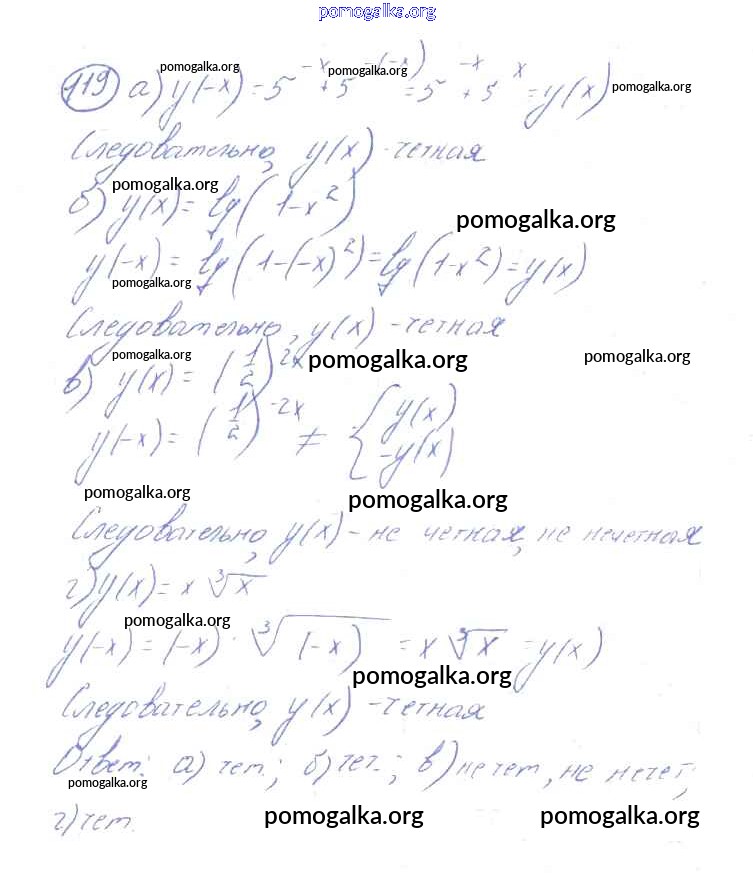 pomogalka.org
119 а) y(-x) = 5^{-x} + 5^{-(-x)} = 5^{-x} + 5^{x} = y(x)
pomogalka.org pomogalka.org pomogalka.org
Следовательно, y(x) - четная
pomogalka.org
б) y(x) = lg(1-x²)
pomogalka.org
y(-x) = lg(1-(-x)²) = lg(1-x²) = y(x)
pomogalka.org
Следовательно, y(x) - четная
pomogalka.org pomogalka.org pomogalka.org
в) y(x) = (1/2)^{2x}
y(-x) = (1/2)^{-2x} ≠ { y(x)
-y(x)
pomogalka.org pomogalka.org
Следовательно, y(x) - не четная, не нечетная
г) y(x) = x ∛x
pomogalka.org
y(-x) = (-x) · ∛(-x) = x ∛x = y(x)
pomogalka.org
Следовательно, y(x) - четная
Ответ: а) чет.; б) чет.; в) не чет, не нечет;
pomogalka.org
г) чет.
pomogalka.org pomogalka.org